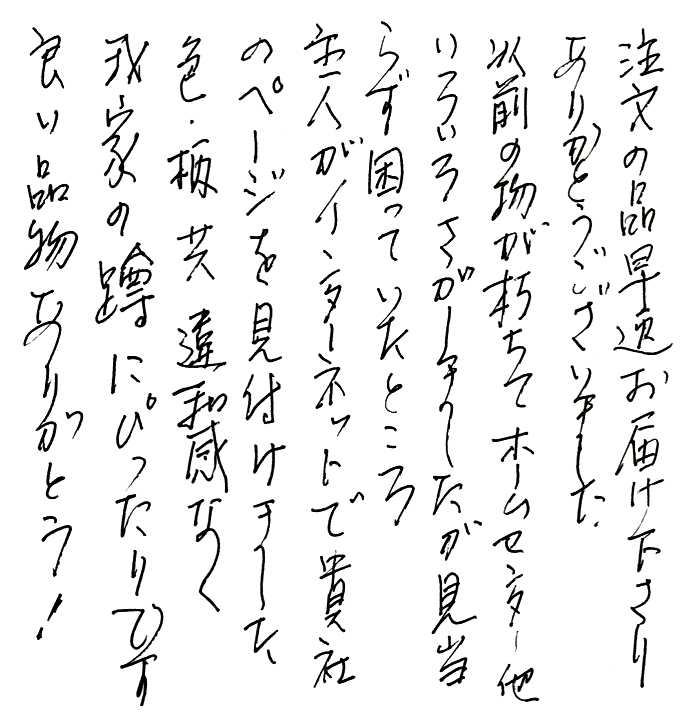 注文の品早速お届け下さり
ありがとうございました
以前の物が朽ちてホームセンター他
いろいろさがしましたが見当
らず困っていたところ
主人がインターネットで貴社
のページを見付けました
色・柄共違和感なく
我家の蹲にぴったりです
良い品物ありがとう!